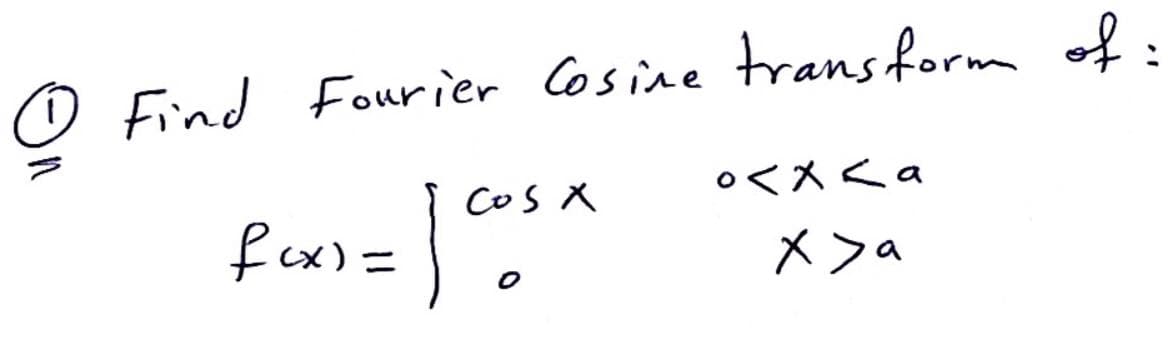 ① Find Fourier Cosine transform of :
f(x) = { cos x 0<x<a
0 x>a